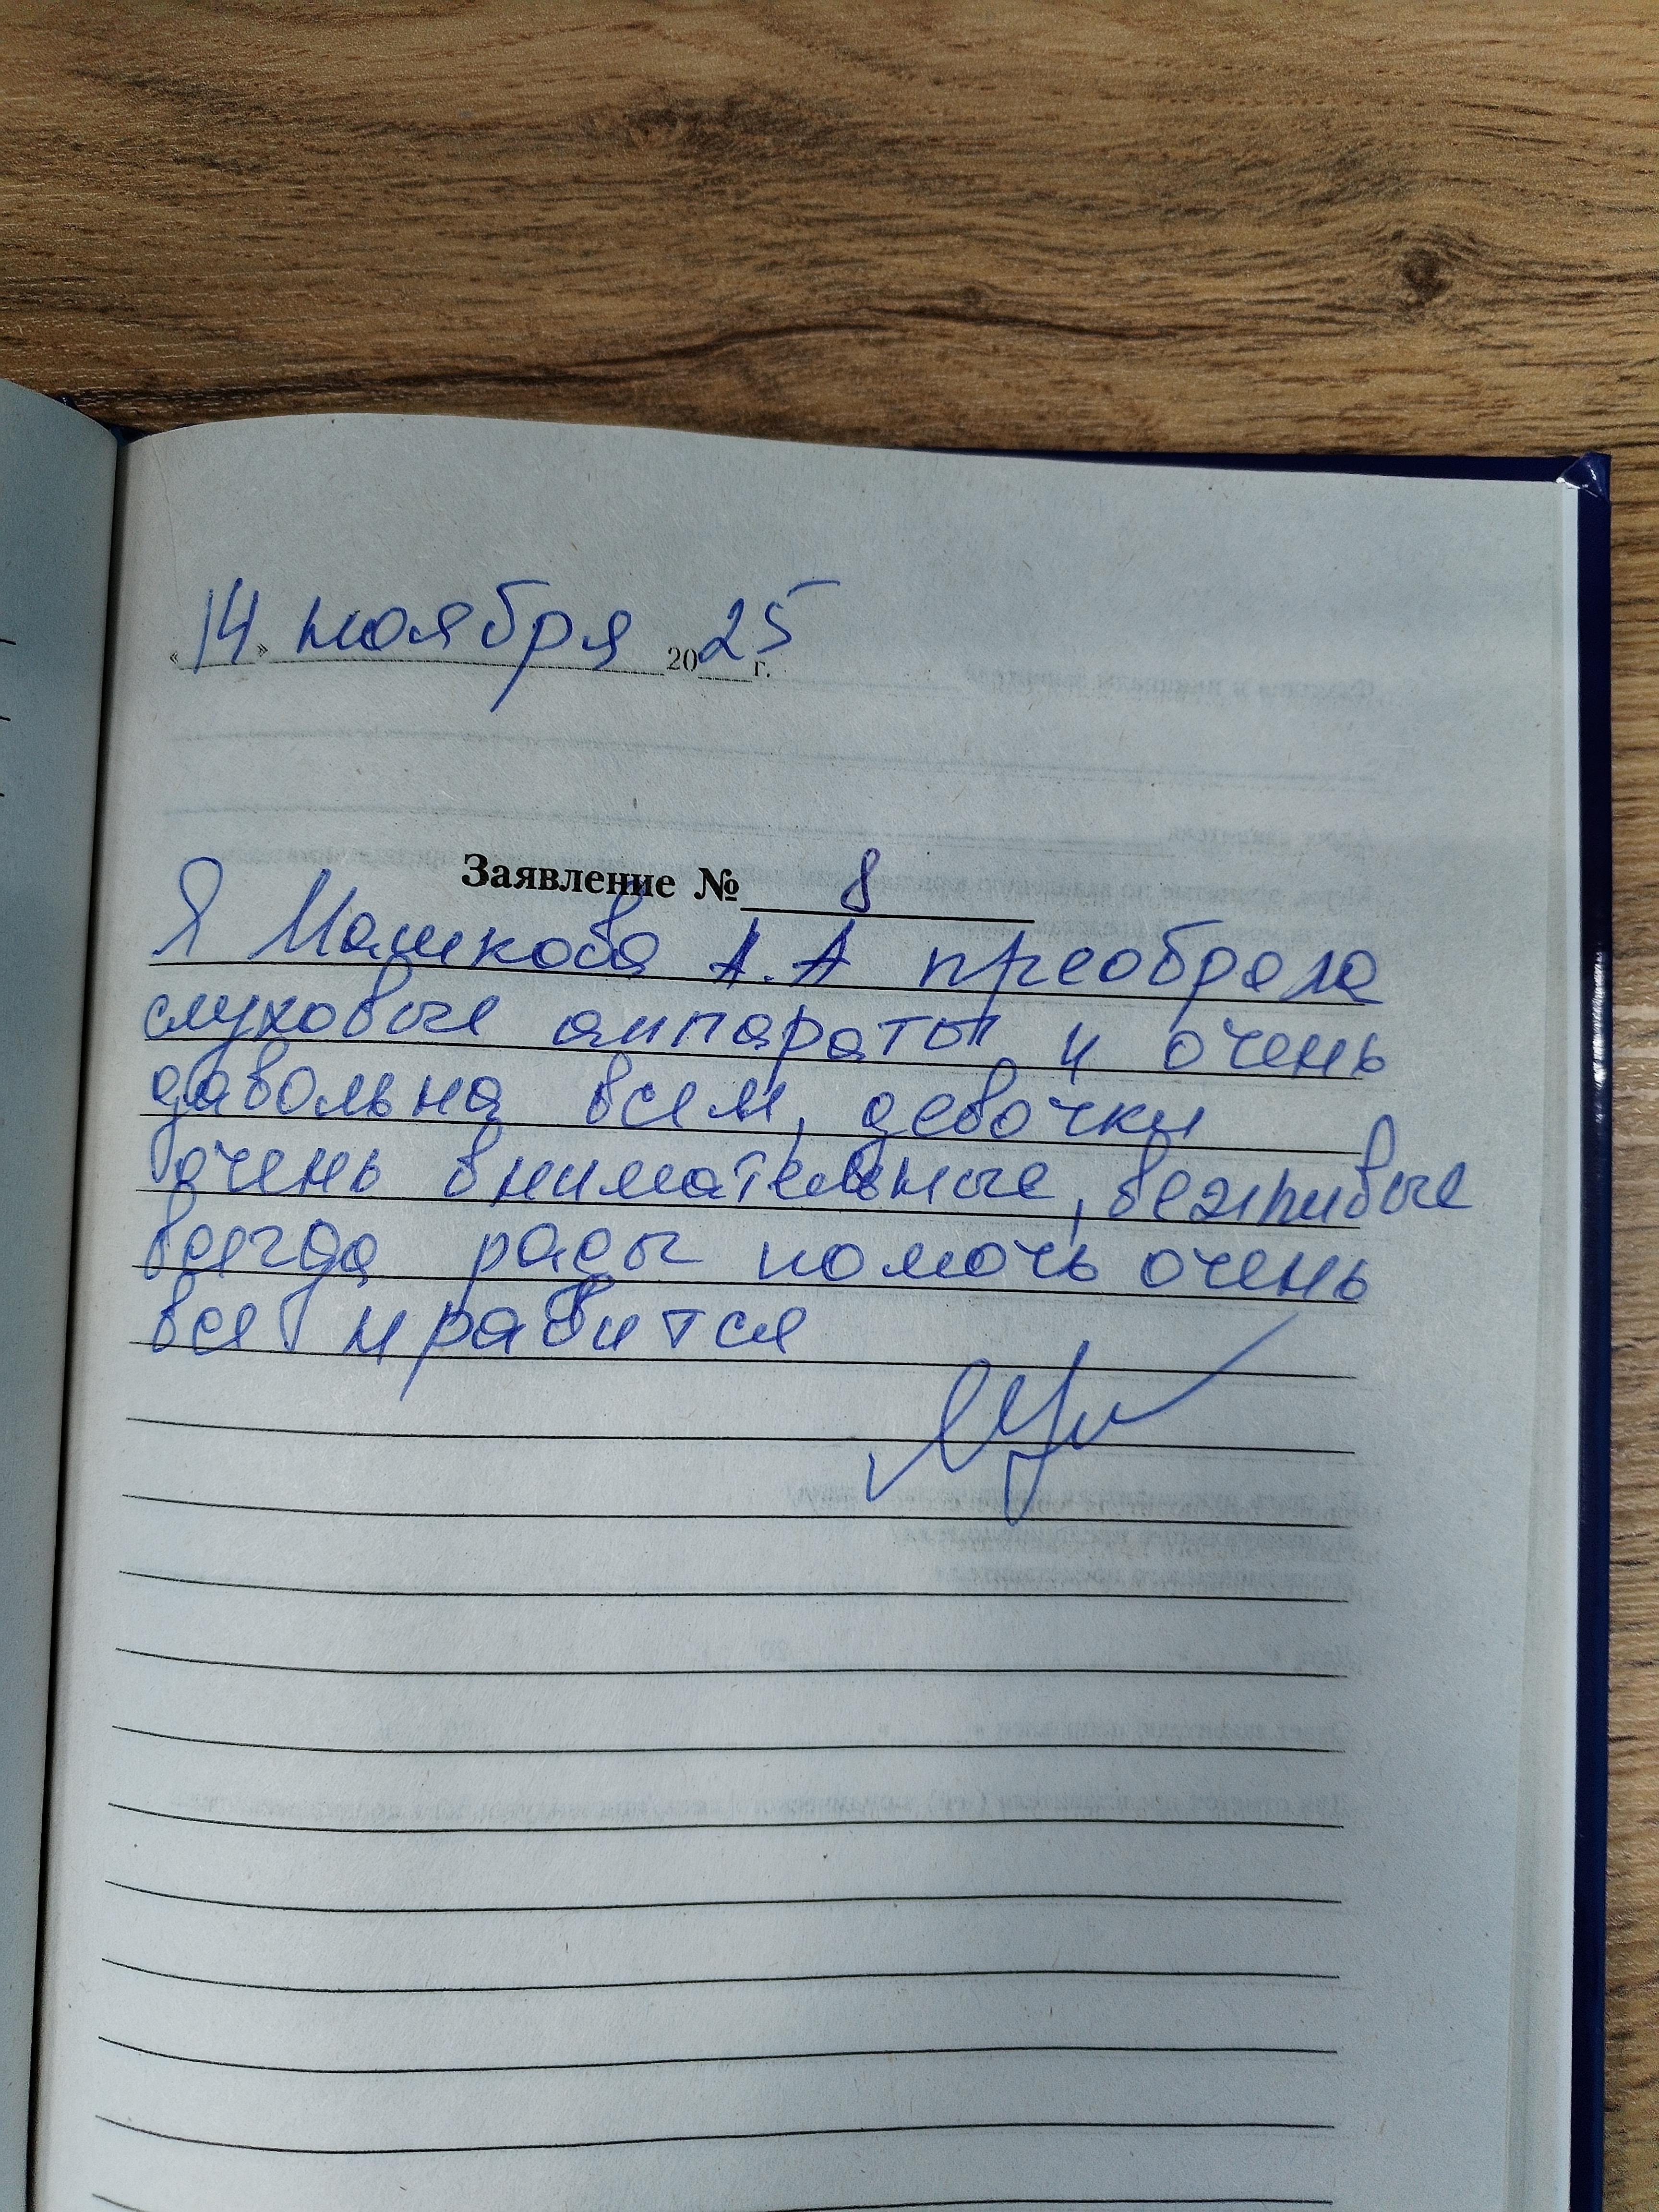 «14» ноября 2025 г.
Заявление № 8
Я Машкова А.А преобрела
слуховые аппараты и очень
давольна всем, девочки
очень внимательные, вежливые
всегда рады помочь очень
все нравится